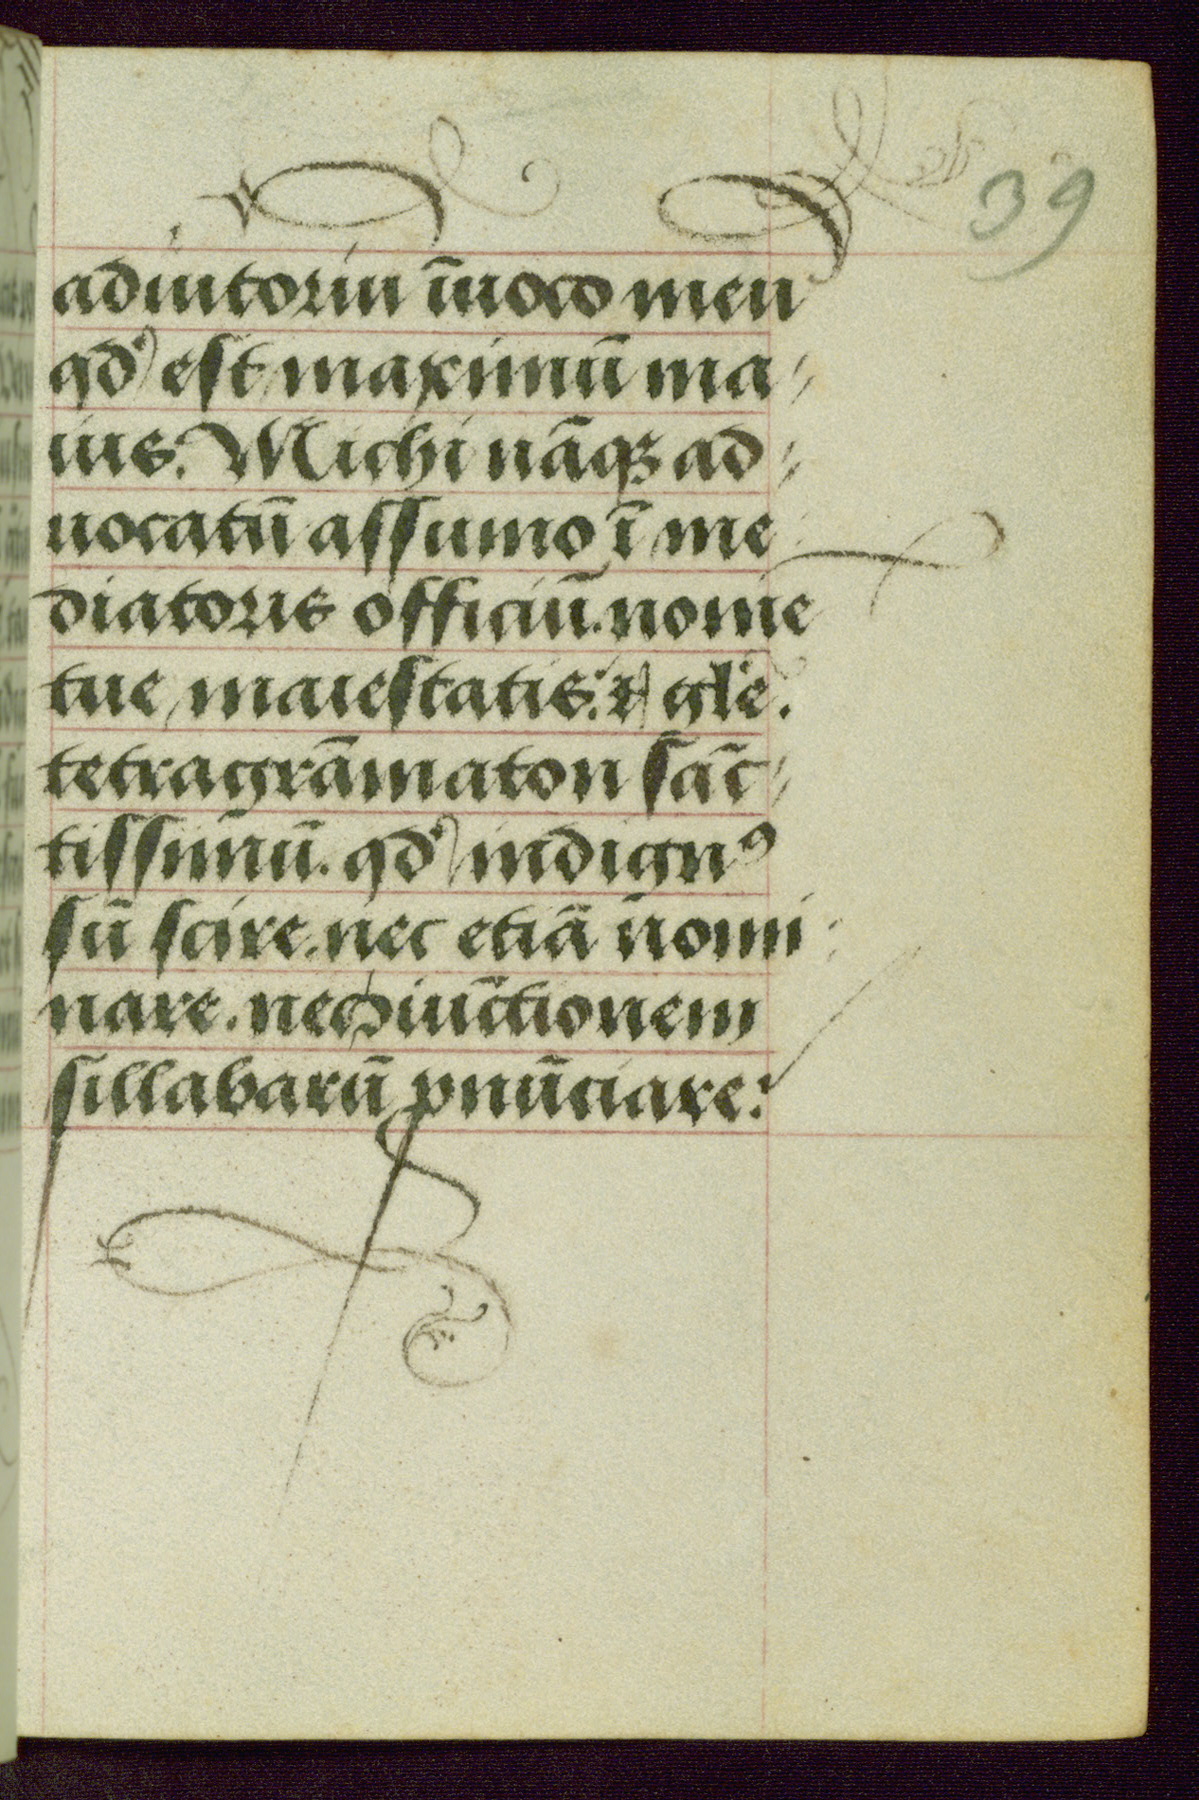 39
adiutoriū īuoco meū
qd' est maximū ma-
ius. Michi nāqꝫ ad-
uocatū assumo ī me-
diatoris officiū. nomē
tue maiestatis: ⁊ gl'e.
tetragrāmaton sāc-
tissimū. qd' indignꝰ
sū scire. nec etiā nomi-
nare. nec iūctionem
sillabarū ꝓnūciare: